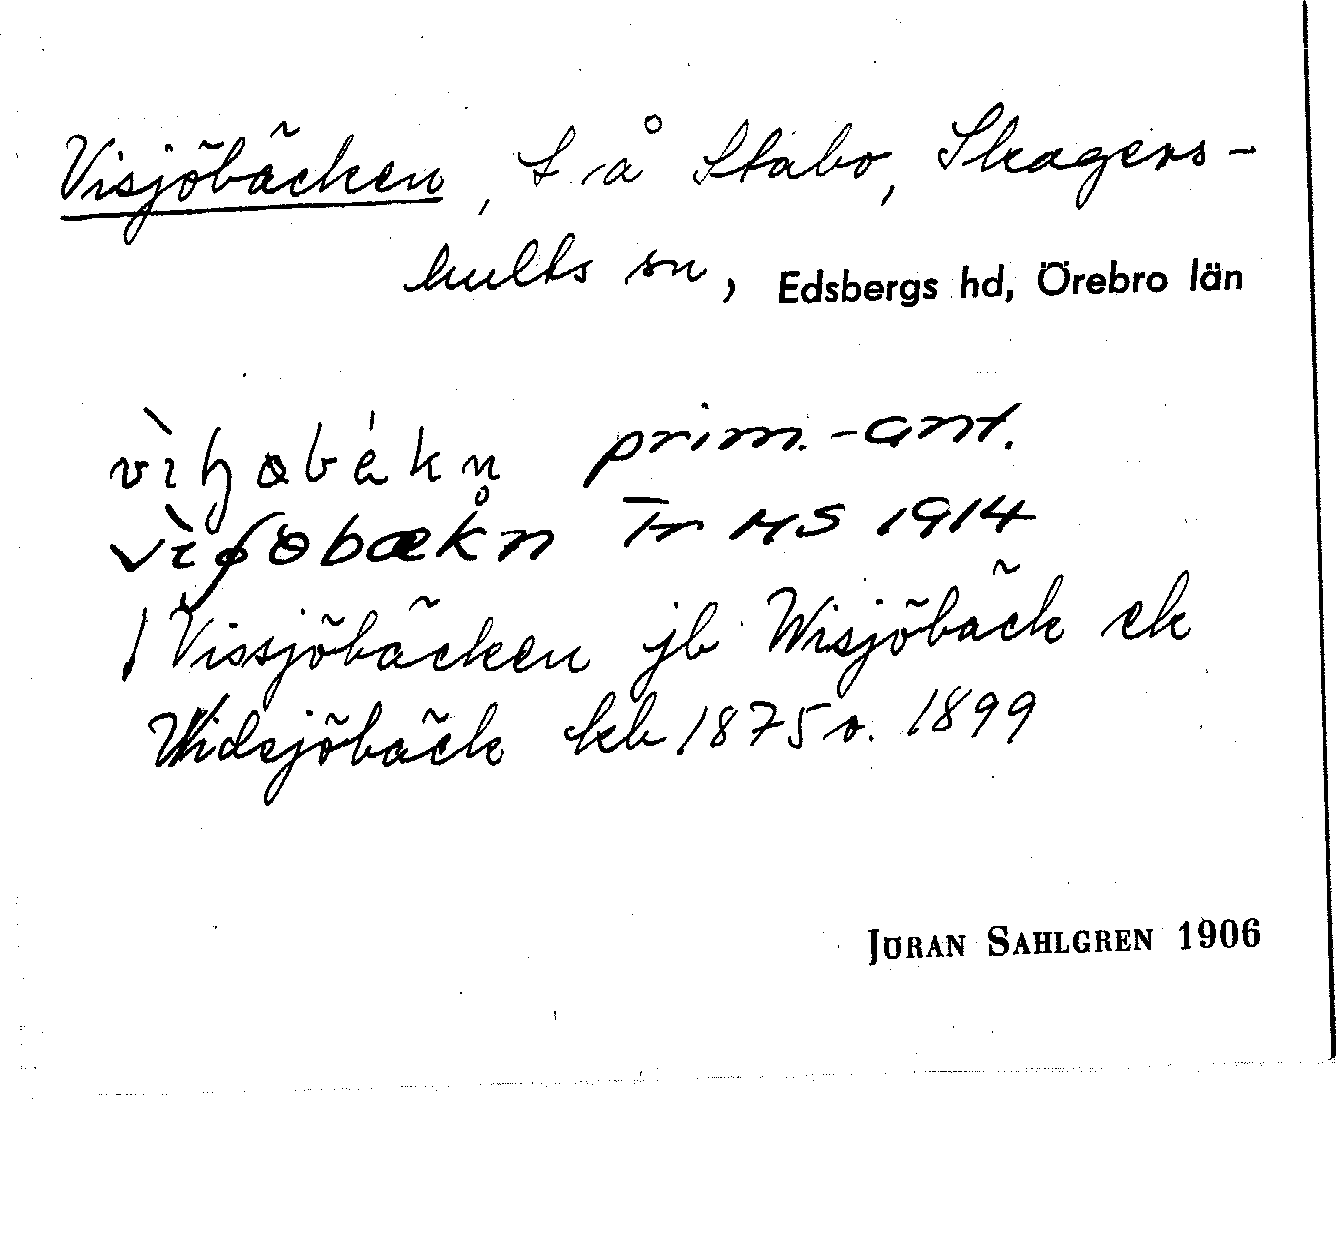 Visjöbäcken, t. å Stabo, Skagers-
hults sn, Edsbergs hd, Örebro län
prim.-ant.
Fr MS 1914
/ Vissjöbäcken jb Wisjöbäck ek
Widsjöbäck kb 1875 o. 1899
JÖRAN SAHLGREN 1906